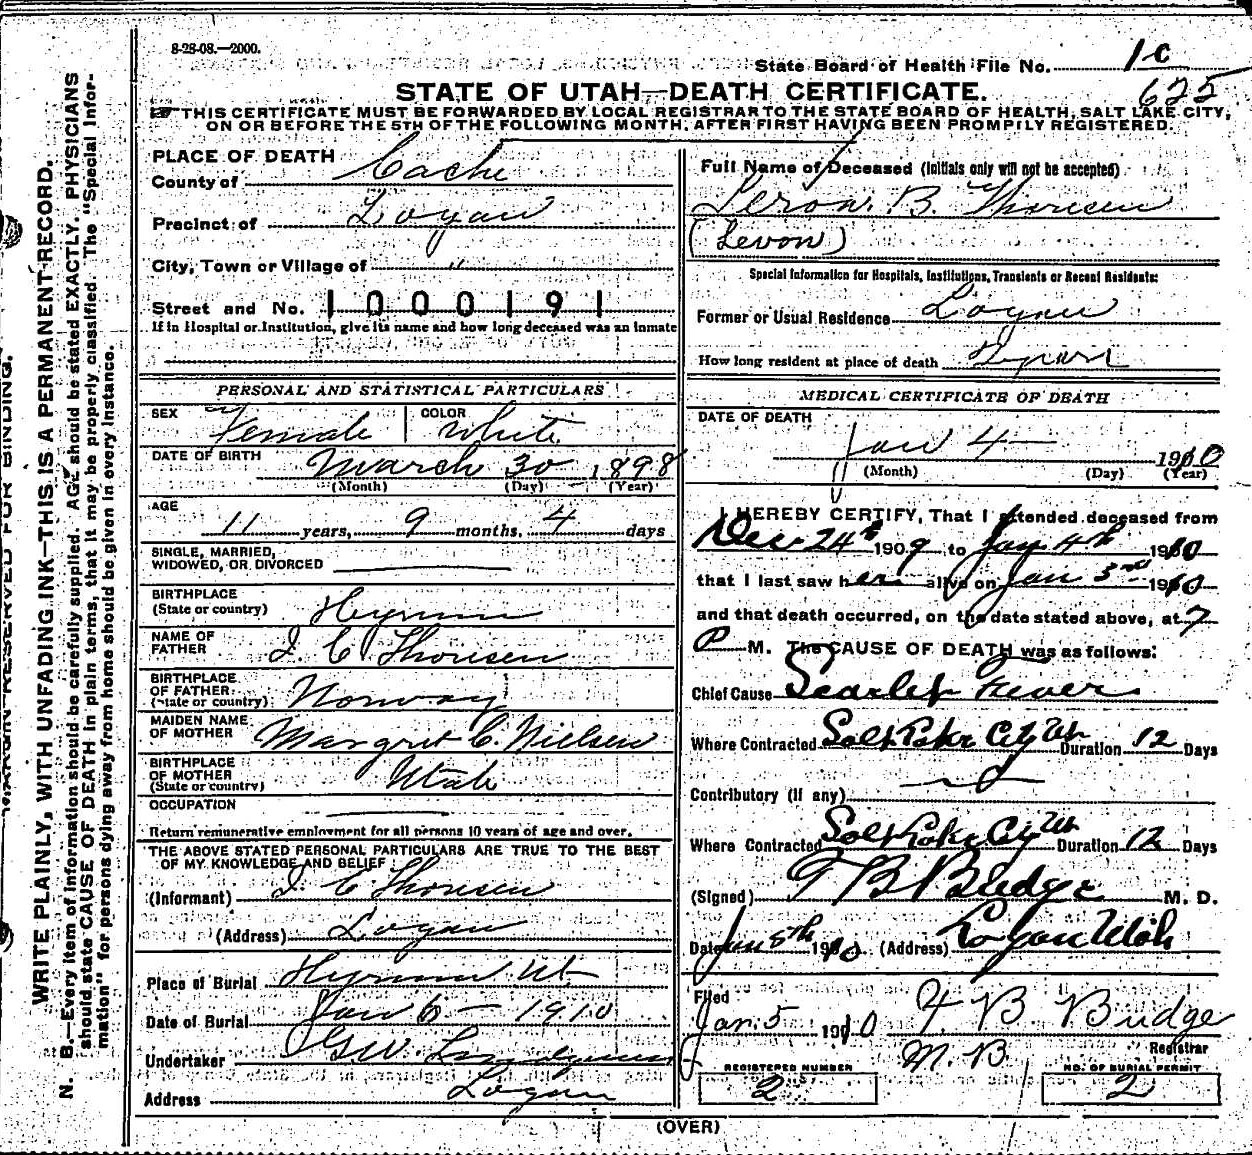 8-28-08.—2000.
State Board of Health File No. 1c
625
STATE OF UTAH—DEATH CERTIFICATE.
THIS CERTIFICATE MUST BE FORWARDED BY LOCAL REGISTRAR TO THE STATE BOARD OF HEALTH, SALT LAKE CITY,
ON OR BEFORE THE 5TH OF THE FOLLOWING MONTH, AFTER FIRST HAVING BEEN PROMPTLY REGISTERED.
PLACE OF DEATH
County of Cache
Precinct of Logan
City, Town or Village of "
Street and No. 1000191
If in Hospital or Institution, give its name and how long deceased was an inmate
PERSONAL AND STATISTICAL PARTICULARS
SEX Female
COLOR White
DATE OF BIRTH March 30 1898
(Month) (Day) (Year)
AGE
11 years, 9 months, 4 days
SINGLE, MARRIED,
WIDOWED, OR DIVORCED
BIRTHPLACE
(State or country) Hyrum
NAME OF
FATHER I C Thoresen
BIRTHPLACE
OF FATHER
(State or country) Norway
MAIDEN NAME
OF MOTHER Margret C. Nielsen
BIRTHPLACE
OF MOTHER
(State or country) Utah
OCCUPATION
Return remunerative employment for all persons 10 years of age and over.
THE ABOVE STATED PERSONAL PARTICULARS ARE TRUE TO THE BEST
OF MY KNOWLEDGE AND BELIEF
(Informant) I C Thoresen
(Address) Logan
Place of Burial Hyrum Ut
Date of Burial Jan 6 — 1910
Undertaker G W. Lindquist
Address Logan
Full Name of Deceased (Initials only will not be accepted)
Leron B. Thoresen
(Levon)
Special Information for Hospitals, Institutions, Transients or Recent Residents:
Former or Usual Residence Logan
How long resident at place of death years
MEDICAL CERTIFICATE OF DEATH
DATE OF DEATH
Jan 4 — 1910
(Month) (Day) (Year)
I HEREBY CERTIFY, That I attended deceased from
Dec 24th 1909 to Jany 4th 1910
that I last saw her alive on Jan 3rd 1910
and that death occurred, on the date stated above, at 7
P M. The CAUSE OF DEATH was as follows:
Chief Cause Scarlet Fever
Where Contracted Salt Lake City Ut Duration 12 Days
Contributory (if any)
Where Contracted Salt Lake City Ut Duration 12 Days
(Signed) T B Budge M. D.
Date Jan 5th 1910 (Address) Logan Utah
Filed
Jan. 5 1910 T. B. Budge
Registrar
M. B
REGISTERED NUMBER
2
NO. OF BURIAL PERMIT
2
(OVER)
MARGIN RESERVED FOR BINDING.
WRITE PLAINLY, WITH UNFADING INK—THIS IS A PERMANENT RECORD.
N. B.—Every item of information should be carefully supplied. AGE should be stated EXACTLY. PHYSICIANS
should state CAUSE OF DEATH in plain terms, that it may be properly classified. The "Special Infor-
mation" for persons dying away from home should be given in every instance.